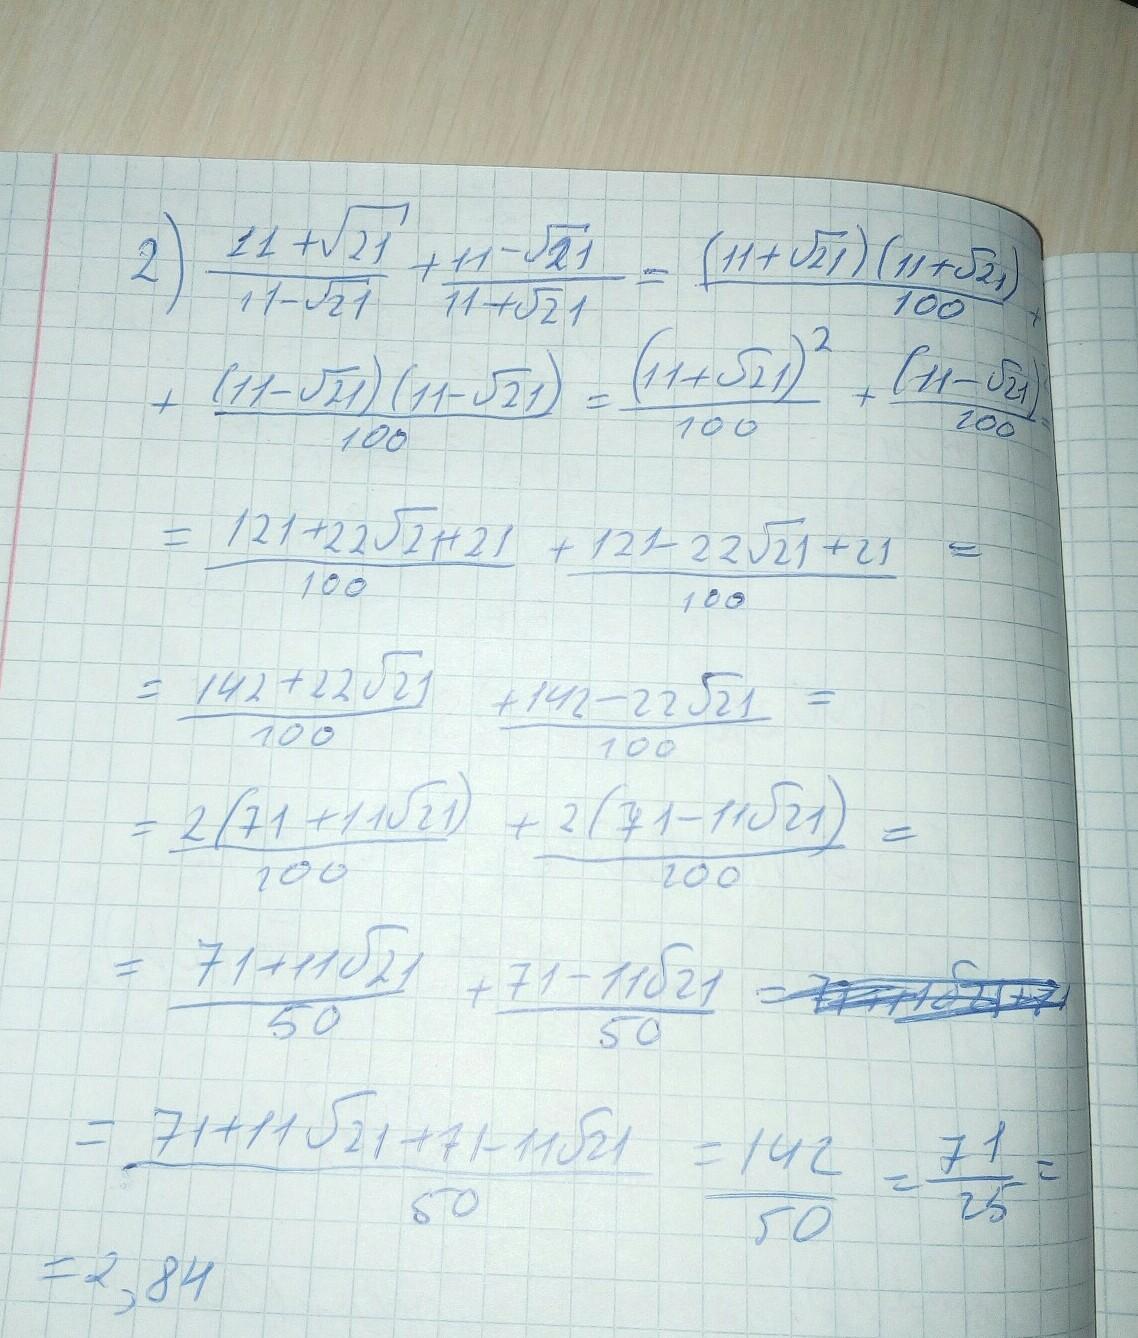 2) (11+√21)/(11-√21) + (11-√21)/(11+√21) = ((11+√21)(11+√21))/100 +
+ ((11-√21)(11-√21))/100 = (11+√21)²/100 + (11-√21)²/100 =
= (121+22√21+21)/100 + (121-22√21+21)/100 =
= (142+22√21)/100 + (142-22√21)/100 =
= 2(71+11√21)/100 + 2(71-11√21)/100 =
= (71+11√21)/50 + (71-11√21)/50 =
= (71+11√21+71-11√21)/50 = 142/50 = 71/25 =
= 2,84